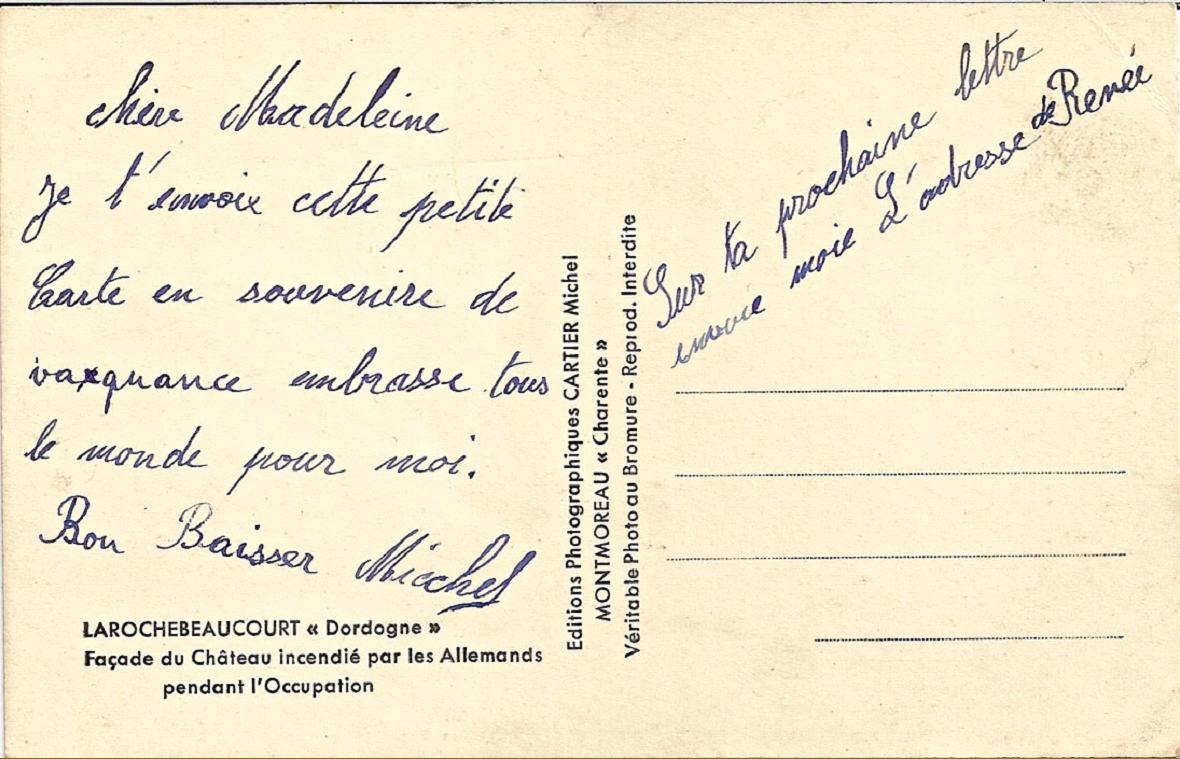 chère Madeleine
Je t'envoie cette petite
Carte en souvenire de
vaxquance embrasse tous
le monde pour moi.
Bon Baisser Micchel
LAROCHEBEAUCOURT « Dordogne »
Façade du Château incendié par les Allemands
pendant l'Occupation
Editions Photographiques CARTIER Michel
MONTMOREAU « Charente »
Véritable Photo au Bromure - Reprod. Interdite
Sur ta prochaine lettre
envoie moie L'adresse de Renée